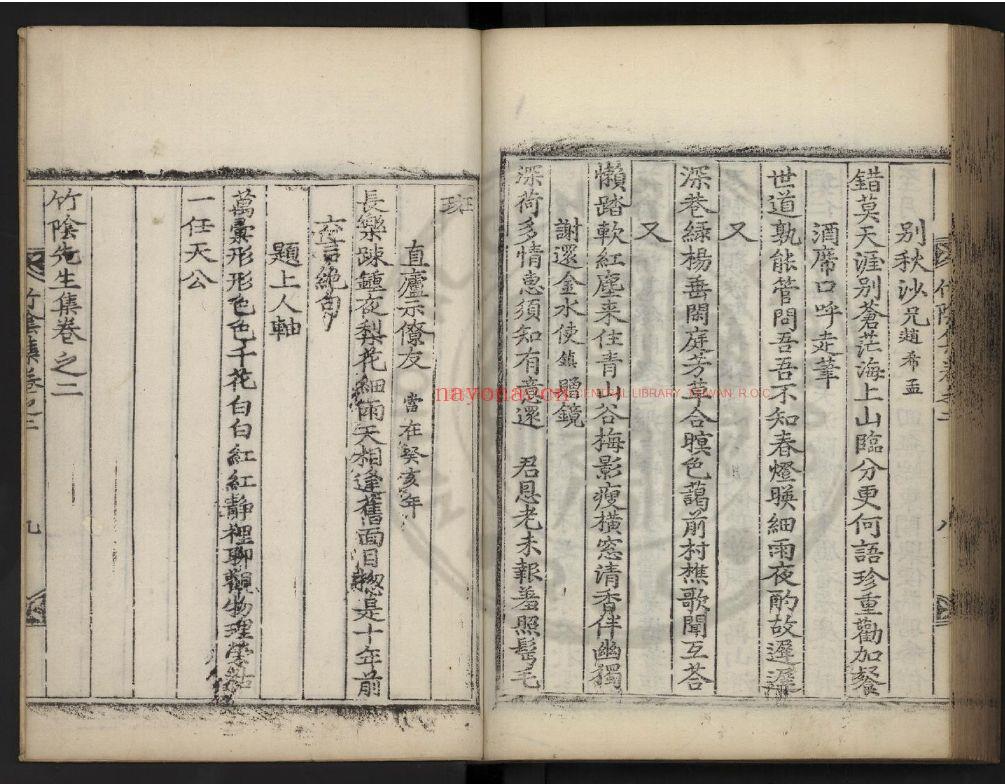 別秋沙兄趙希孟
錯莫天涯別蒼茫海上山臨分更何語珍重勸加餐
酒席口呼走筆
世道孰能管問吾吾不知春燈暎細雨夜酌故遲遲
又
深巷綠楊垂閑庭芳草合暝色藹前村樵歌聞互答
又
懶踏軟紅塵来住青山谷梅影瘦橫窓清香伴幽獨
謝還金水使鎮贈鏡
深荷多情惠須知有意還 君恩老未報羞照髩毛
斑
直廬示僚友 當在癸亥年
長樂踈鍾夜梨花細雨天相逢舊面目惣是十年前
六言絶句
題上人軸
萬彙形形色色千花白白紅紅靜裡聊觀物理榮枯
一任天公
竹陰先生集卷之二
竹陰集卷之二
九
竹陰集卷之二
八
nayona.cn
CENTRAL LIBRARY, TAIWAN, R.O.C.